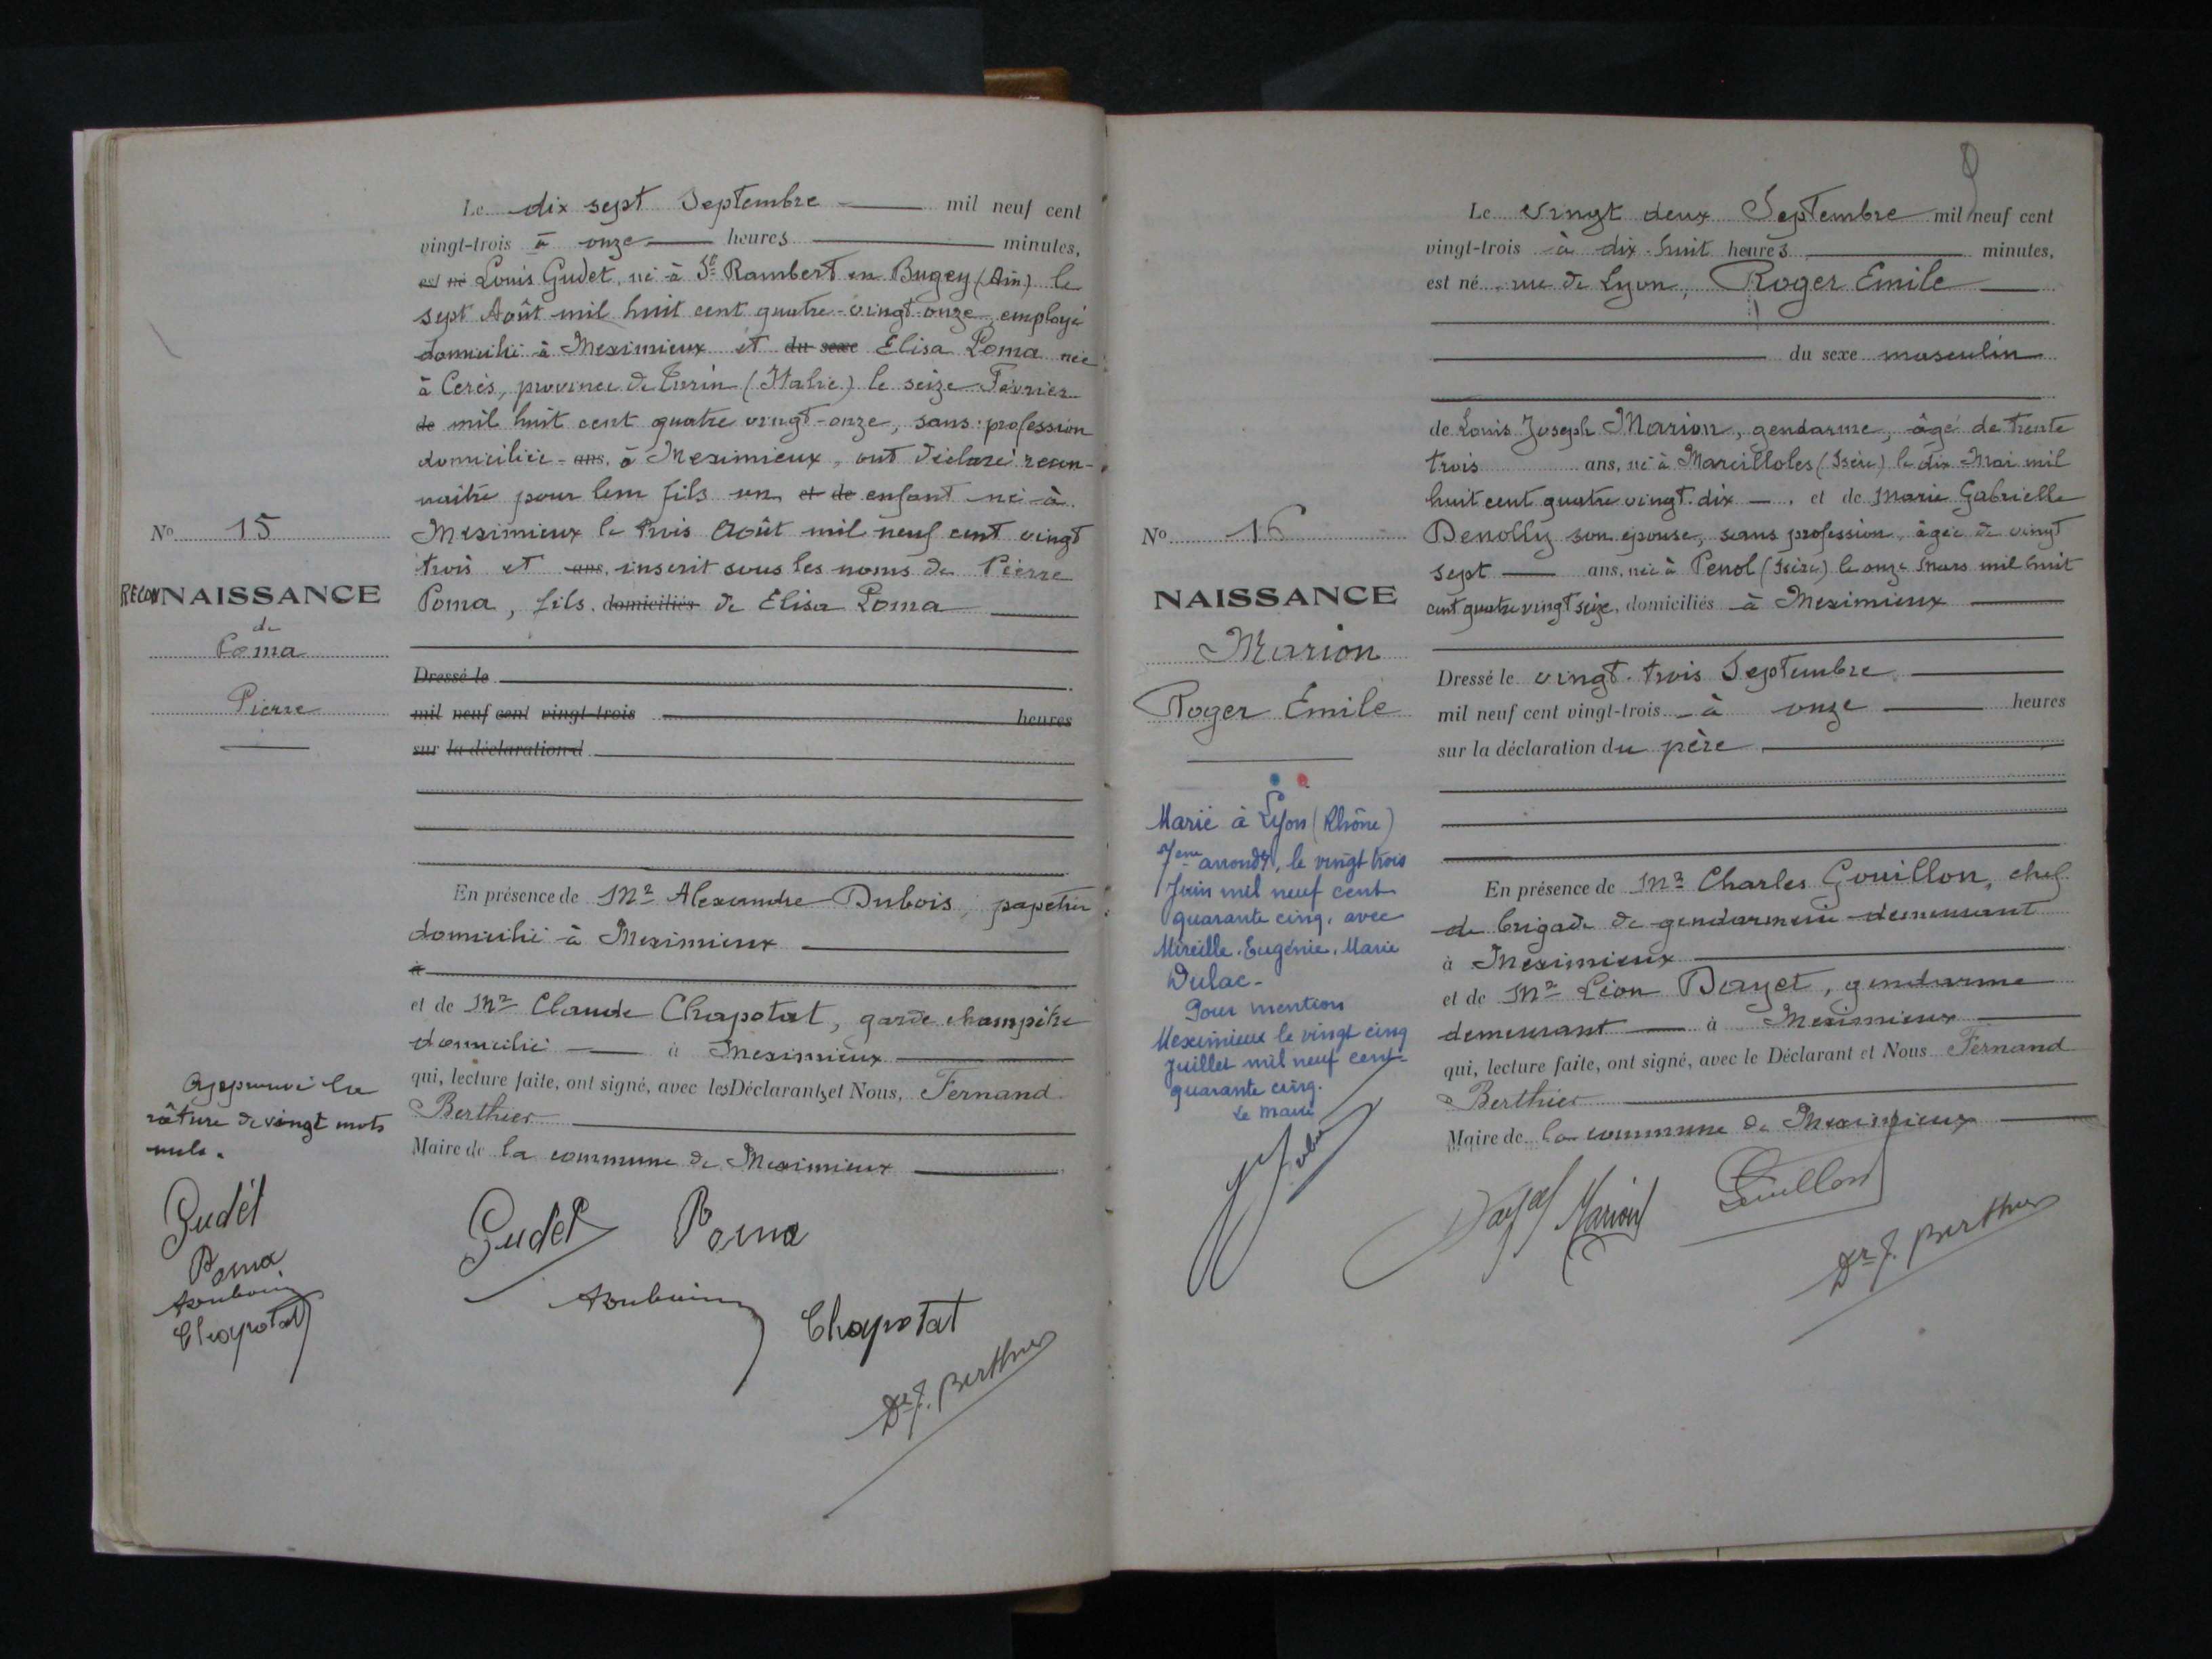 Le dix sept Septembre mil neuf cent
vingt-trois à onze heures minutes,
est né Louis Gudet, né à St Rambert en Bugey (Ain) le
sept Août mil huit cent quatre-vingt-onze, employé
domicilié à Meximieux et du sexe Elisa Poma née
à Cerès, province de Turin (Italie) le seize Février
de mil huit cent quatre vingt-onze, sans profession
domiciliée ans, à Meximieux, ont déclaré recon-
naître pour leur fils un et de enfant né à
Meximieux le trois Août mil neuf cent vingt
trois et ans, inscrit sous les noms de Pierre
Poma, fils domiciliés de Elisa Poma
No 15
RECONNAISSANCE
de
Poma
Pierre
Dressé le
mil neuf cent vingt-trois heures
sur la déclaration d
En présence de Mr Alexandre Dubois, papetier
domicilié à Meximieux
à
et de Mr Claude Chapotat, garde champêtre
domicilié à Meximieux
qui, lecture faite, ont signé, avec les Déclarants et Nous, Fernand
Berthier
Maire de la commune de Meximieux
Approuvé la
râture de vingt mots
nuls.
Gudet
Poma
Chapotat
Gudet Poma
Chapotat
Dr F. Berthier
9
Le vingt deux Septembre mil neuf cent
vingt-trois à dix-huit heures minutes,
est né rue de Lyon, Roger Emile
du sexe masculin
de Louis Joseph Marion, gendarme, âgé de trente
trois ans, né à Marcilloles (Isère) le dix Mai mil
huit cent quatre vingt-dix, et de Marie Gabrielle
Denolly son épouse, sans profession, âgée de vingt
sept ans, née à Penol (Isère) le onze Mars mil huit
cent quatre vingt seize, domiciliés à Meximieux
No 16
NAISSANCE
Marion
Roger Emile
Dressé le vingt-trois Septembre
mil neuf cent vingt-trois à onze heures
sur la déclaration du père
Marié à Lyon (Rhône)
7eme arrondt, le vingt trois
Juin mil neuf cent
quarante cinq, avec
Mireille, Eugénie, Marie
Dulac-
Pour mention
Meximieux le vingt cinq
Juillet mil neuf cent-
quarante cinq.
Le maire
En présence de Mr Charles Gouillon, chef
de brigade de gendarmerie demeurant
à Meximieux
et de Mr Léon Dayet, gendarme
demeurant à Meximieux
qui, lecture faite, ont signé, avec le Déclarant et Nous Fernand
Berthier
Maire de la commune de Meximieux
Dayet Marion Gouillon
Dr F. Berthier